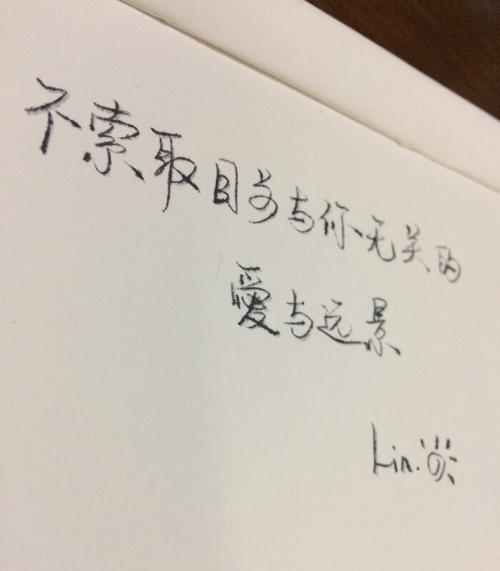 不索取目前与你无关的
愛与远景
Lin.